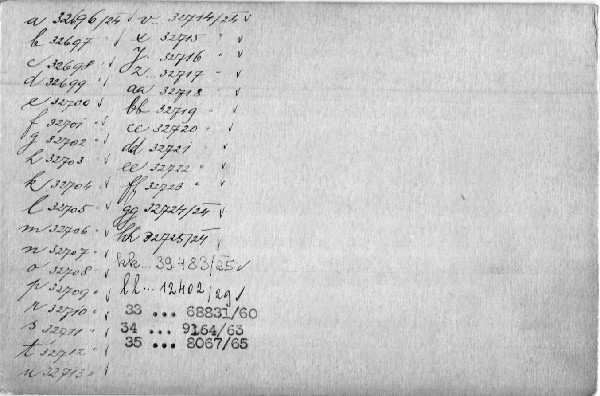 a 32696/25 √
b 32697 " √
c 32698 " √
d 32699 " √
e 32700 " √
f 32701 " √
g 32702 " √
h 32703 " √
k 32704 " √
l 32705 " √
m 32706 " √
n 32707 " √
o 32708 " √
p 32709 " √
r 32710 " √
s 32711 " √
t 32712 " √
u 32713 " √
v. 32714/25 √
x 32715 " √
y 32716 " √
z 32717 " √
aa 32718 " √
bb 32719 " √
cc 32720 " √
dd 32721 √
ee 32722 " √
ff 32723 " √
gg 32724/25 √
hh 32725/25 √
kk... 39483/25 √
ll... 12402/29 √
33 ... 68831/60
34 ... 9164/63
35 ... 8067/65